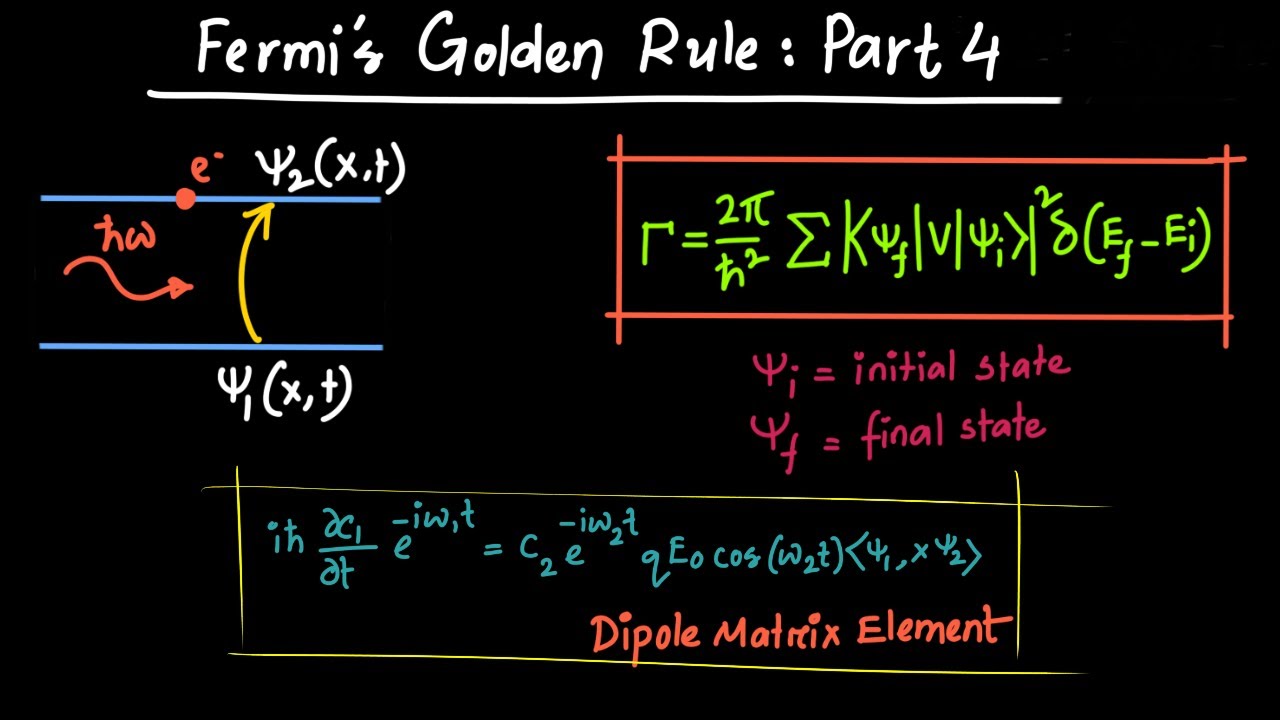 Fermi's Golden Rule : Part 4
e⁻ Ψ₂(x,t)
ħω
Ψ₁(x,t)
Γ = 2π/ħ² ∑ |⟨Ψ_f|V|Ψ_i⟩|² δ(E_f - E_i)
Ψ_i = initial state
Ψ_f = final state
iħ ∂C₁/∂t e^(-iω₁t) = C₂ e^(-iω₂t) qE₀ cos(ω₂t)⟨Ψ₁, xΨ₂⟩
Dipole Matrix Element